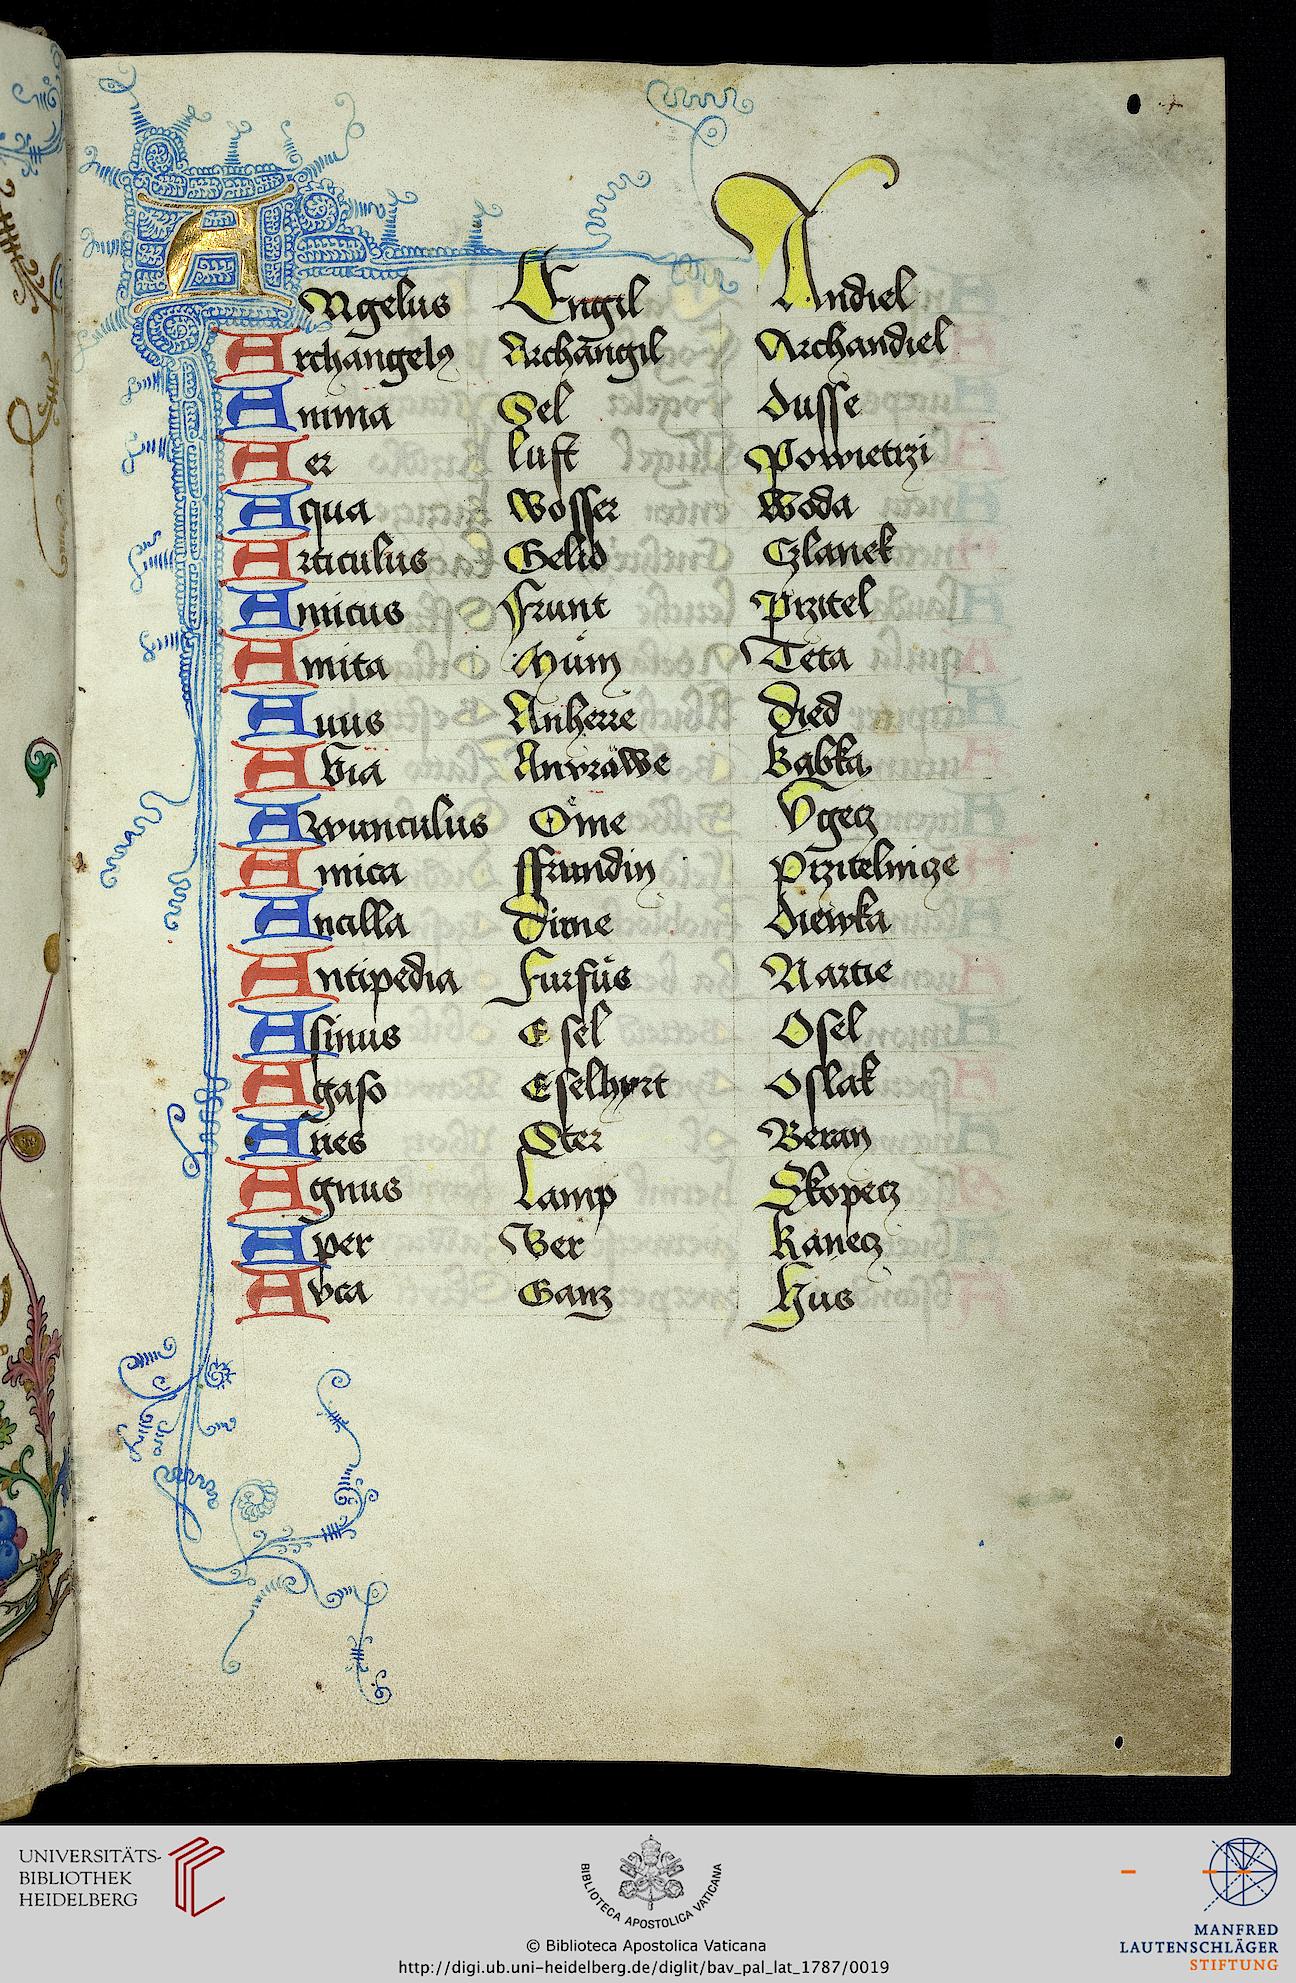 Angelus Engil Andiel
Archangelus Archangil Archandiel
Anima Sel dusse
Aer luft Powietrzi
Aqua Wosser Woda
Articulus Gelid Czlanek
Amicus Frunt Przitel
Amita Mům Teta
Auus Anherre Died
Avia Anvrawe Babka
Awunculus Ome Vgecz
Amica ffrundin Przitelnicze
Ancilla Dirne diewka
Antipedia Furfůs Nartie
Asinus Esel Osel
Agaso Eselhyrt Oslak
Aries Ster Beran
Agnus Lamp Skopecz
Aper Ber Kanecz
Avca Ganz Hus
UNIVERSITÄTS-
BIBLIOTHEK
HEIDELBERG
BIBLIOTECA APOSTOLICA VATICANA
MANFRED
LAUTENSCHLÄGER
STIFTUNG
© Biblioteca Apostolica Vaticana
http://digi.ub.uni-heidelberg.de/diglit/bav_pal_lat_1787/0019